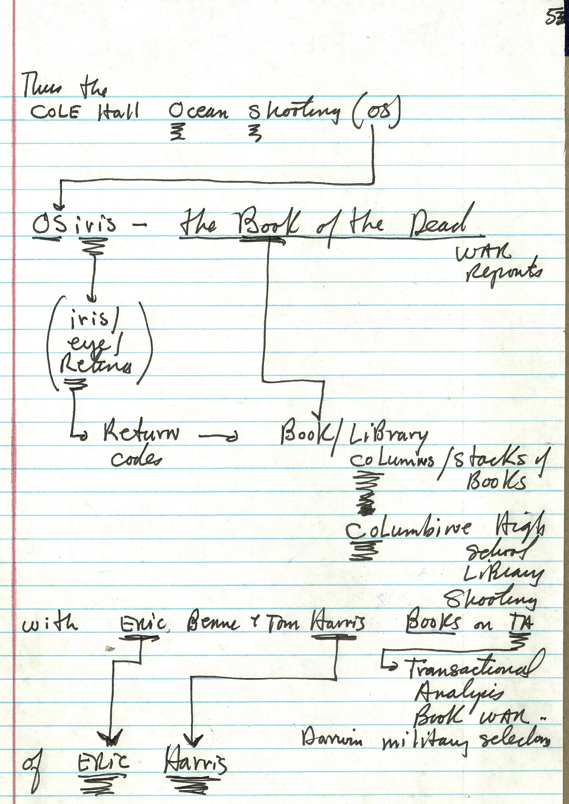 53
Thus the
COLE Hall Ocean Shooting (OS)
OSiris - the Book of the Dead
WAR
Reports
(iris/
eye/
Retina)
Return → Book/Library
codes
columns/stacks of
Books
Columbine High
School
Library
Shooting
with Eric Berne & Tom Harris Books on TA
Transactional
Analysis
Book WAR -
Darwin military selection
of Eric Harris